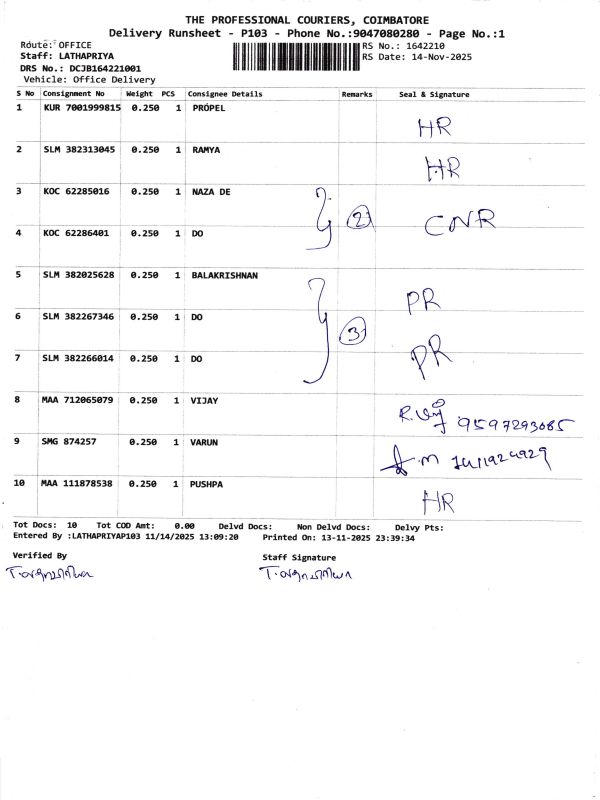 THE PROFESSIONAL COURIERS, COIMBATORE
Delivery Runsheet - P103 - Phone No.:9047080280 - Page No.:1
Route: OFFICE
RS No.: 1642210
Staff: LATHAPRIYA
RS Date: 14-Nov-2025
DRS No.: DCJB164221001
Vehicle: Office Delivery
S No Consignment No Weight PCS Consignee Details Remarks Seal & Signature
1 KUR 7001999815 0.250 1 PROPEL HR
2 SLM 382313045 0.250 1 RAMYA HR
3 KOC 62285016 0.250 1 NAZA DE 2 CNR
4 KOC 62286401 0.250 1 DO
5 SLM 382025628 0.250 1 BALAKRISHNAN PR
6 SLM 382267346 0.250 1 DO 3
7 SLM 382266014 0.250 1 DO PR
8 MAA 712065079 0.250 1 VIJAY 9597293085
9 SMG 874257 0.250 1 VARUN
10 MAA 111878538 0.250 1 PUSHPA HR
Tot Docs: 10 Tot COD Amt: 0.00 Delvd Docs: Non Delvd Docs: Delvy Pts:
Entered By :LATHAPRIYAP103 11/14/2025 13:09:20 Printed On: 13-11-2025 23:39:34
Verified By Staff Signature